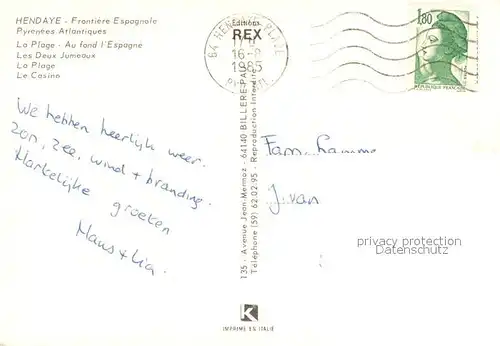 HENDAYE - Frontière Espagnole
Pyrénées Atlantiques
La Plage - Au fond l'Espagne
Les Deux Jumeaux
La Plage
Le Casino
Editions
REX
64 HENDAYE PLAGE
16-8
1985
1,80
REPUBLIQUE FRANÇAISE
We hebben heerlijk weer.
Zon, zee, wind + branding.
Hartelijke groeten
Hans + Lia.
Fam.
J. van
135 - Avenue Jean-Mermoz - 64140 BILLERE-PAU
Téléphone (59) 62.02.95 - Reproduction Interdite
privacy protection
Datenschutz
K
IMPRIMÉ EN ITALIE